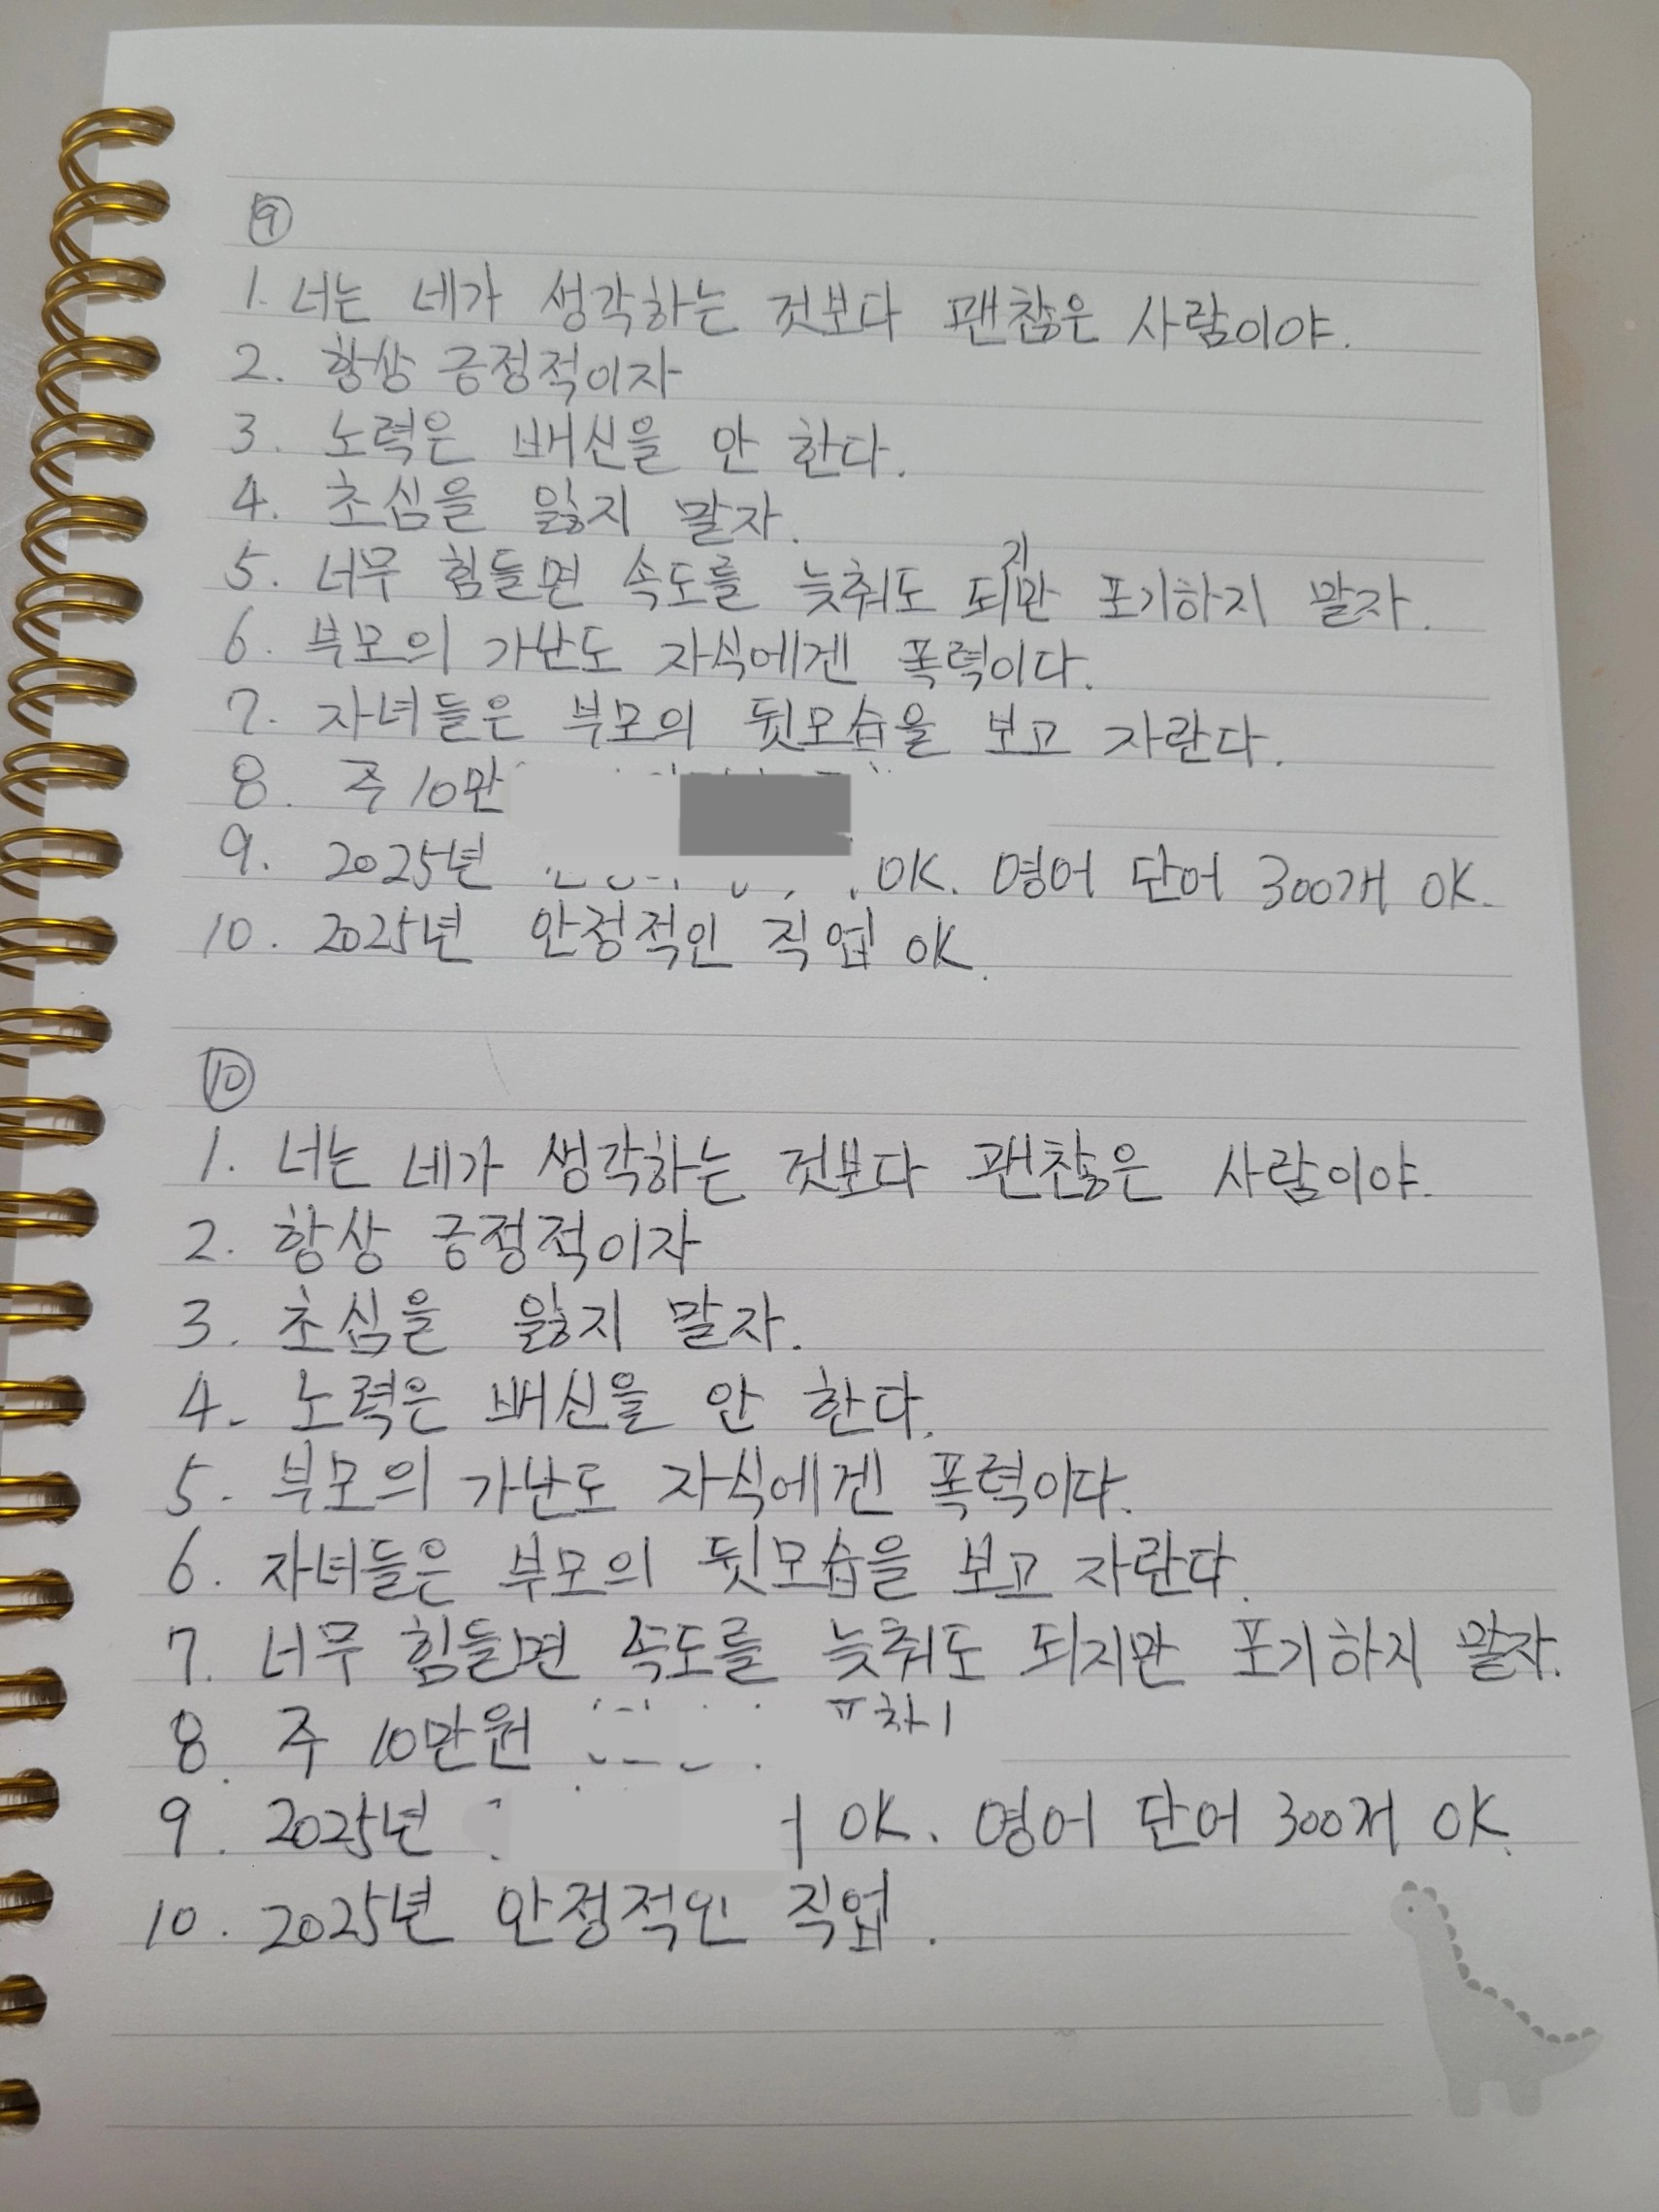 ⑨
1. 너는 네가 생각하는 것보다 괜찮은 사람이야.
2. 항상 긍정적이자
3. 노력은 배신을 안 한다.
4. 초심을 잃지 말자.
5. 너무 힘들면 속도를 늦춰도 되지만 포기하지 말자.
6. 부모의 가난도 자식에겐 폭력이다.
7. 자녀들은 부모의 뒷모습을 보고 자란다.
8. 주 10만
9. 2025년 OK. 영어 단어 300개 OK.
10. 2025년 안정적인 직업 OK.
⑩
1. 너는 네가 생각하는 것보다 괜찮은 사람이야.
2. 항상 긍정적이자
3. 초심을 잃지 말자.
4. 노력은 배신을 안 한다.
5. 부모의 가난도 자식에겐 폭력이다.
6. 자녀들은 부모의 뒷모습을 보고 자란다.
7. 너무 힘들면 속도를 늦춰도 되지만 포기하지 말자.
8. 주 10만원
9. 2025년 OK. 영어 단어 300개 OK.
10. 2025년 안정적인 직업.